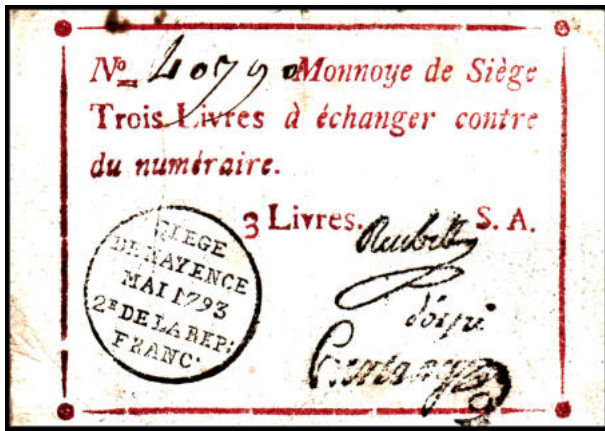 Nº 40790 Monnoye de Siège
Trois Livres à échanger contre
du numéraire.
3 Livres. S. A.
SIEGE
DE MAYENCE
MAI 1793
2E DE LA REP:
FRANC:
Reubell